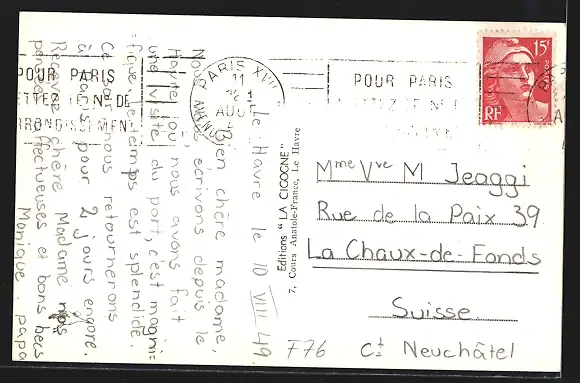 Le Havre le 10 VIII 49.
Bien chère madame,
Nous vous écrivons depuis le
Havre ou nous avons fait
une visite du port, c'est magni=
fique le temps est splendide.
Ce soir nous retournerons
à Paris pour 2 jours encore.
Recevez chère Madame nos
pensées affectueuses et bons becs
Monique. papa
POUR PARIS
METTEZ LE N° DE
L'ARRONDISSEMENT
PARIS XVII
11
AOU
POUR PARIS
METTEZ LE N°
15F
RF
Editions "LA CIGOGNE"
7, Cours Anatole-France, Le Havre
Mme Vve M Jeaggi
Rue de la Paix 39
La Chaux-de-Fonds
Suisse.
F76
Ct Neuchâtel